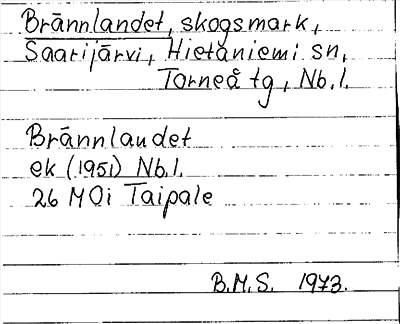 Brännlandet, skogsmark,
Saarijärvi, Hietaniemi sn,
Torneå tg, Nb.l.
Brännlandet
ek (1951) Nb.l.
26 M0i Taipale
B.M.S. 1973.